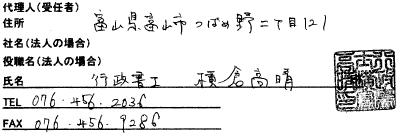 代理人(受任者)
住所 富山県富山市つばめ野二丁目121
社名(法人の場合)
役職名(法人の場合)
氏名 行政書士 横倉高晴
TEL 076.456.2036
FAX 076.456.9286